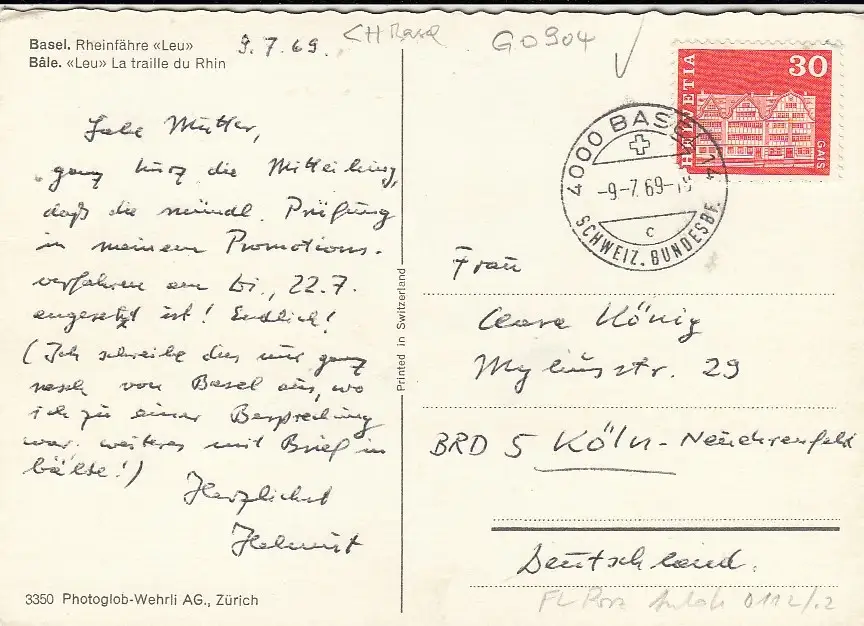 Basel. Rheinfähre «Leu»
Bâle. «Leu» La traille du Rhin
9.7.69.
CH Basel
GO904
HELVETIA
30
GAIS
4000 BASEL 14
-9-7.69-19
c
SCHWEIZ. BUNDESBF.
Liebe Mutter,
ganz kurz die Mitteilung,
daß die mündl. Prüfung
in meinem Promotions-
verfahren am Di., 22.7.
angesetzt ist! Endlich!
(Ich schreibe dies nur ganz
rasch von Basel aus, wo
ich zu einer Besprechung
war. weiteres mit Brief in
Bälde!)
Herzlichst
Helmut
Printed in Switzerland
Frau
Clara König
Myliusstr. 29
BRD 5 Köln-Neuehrenfeld
Deutschland.
3350 Photoglob-Wehrli AG., Zürich